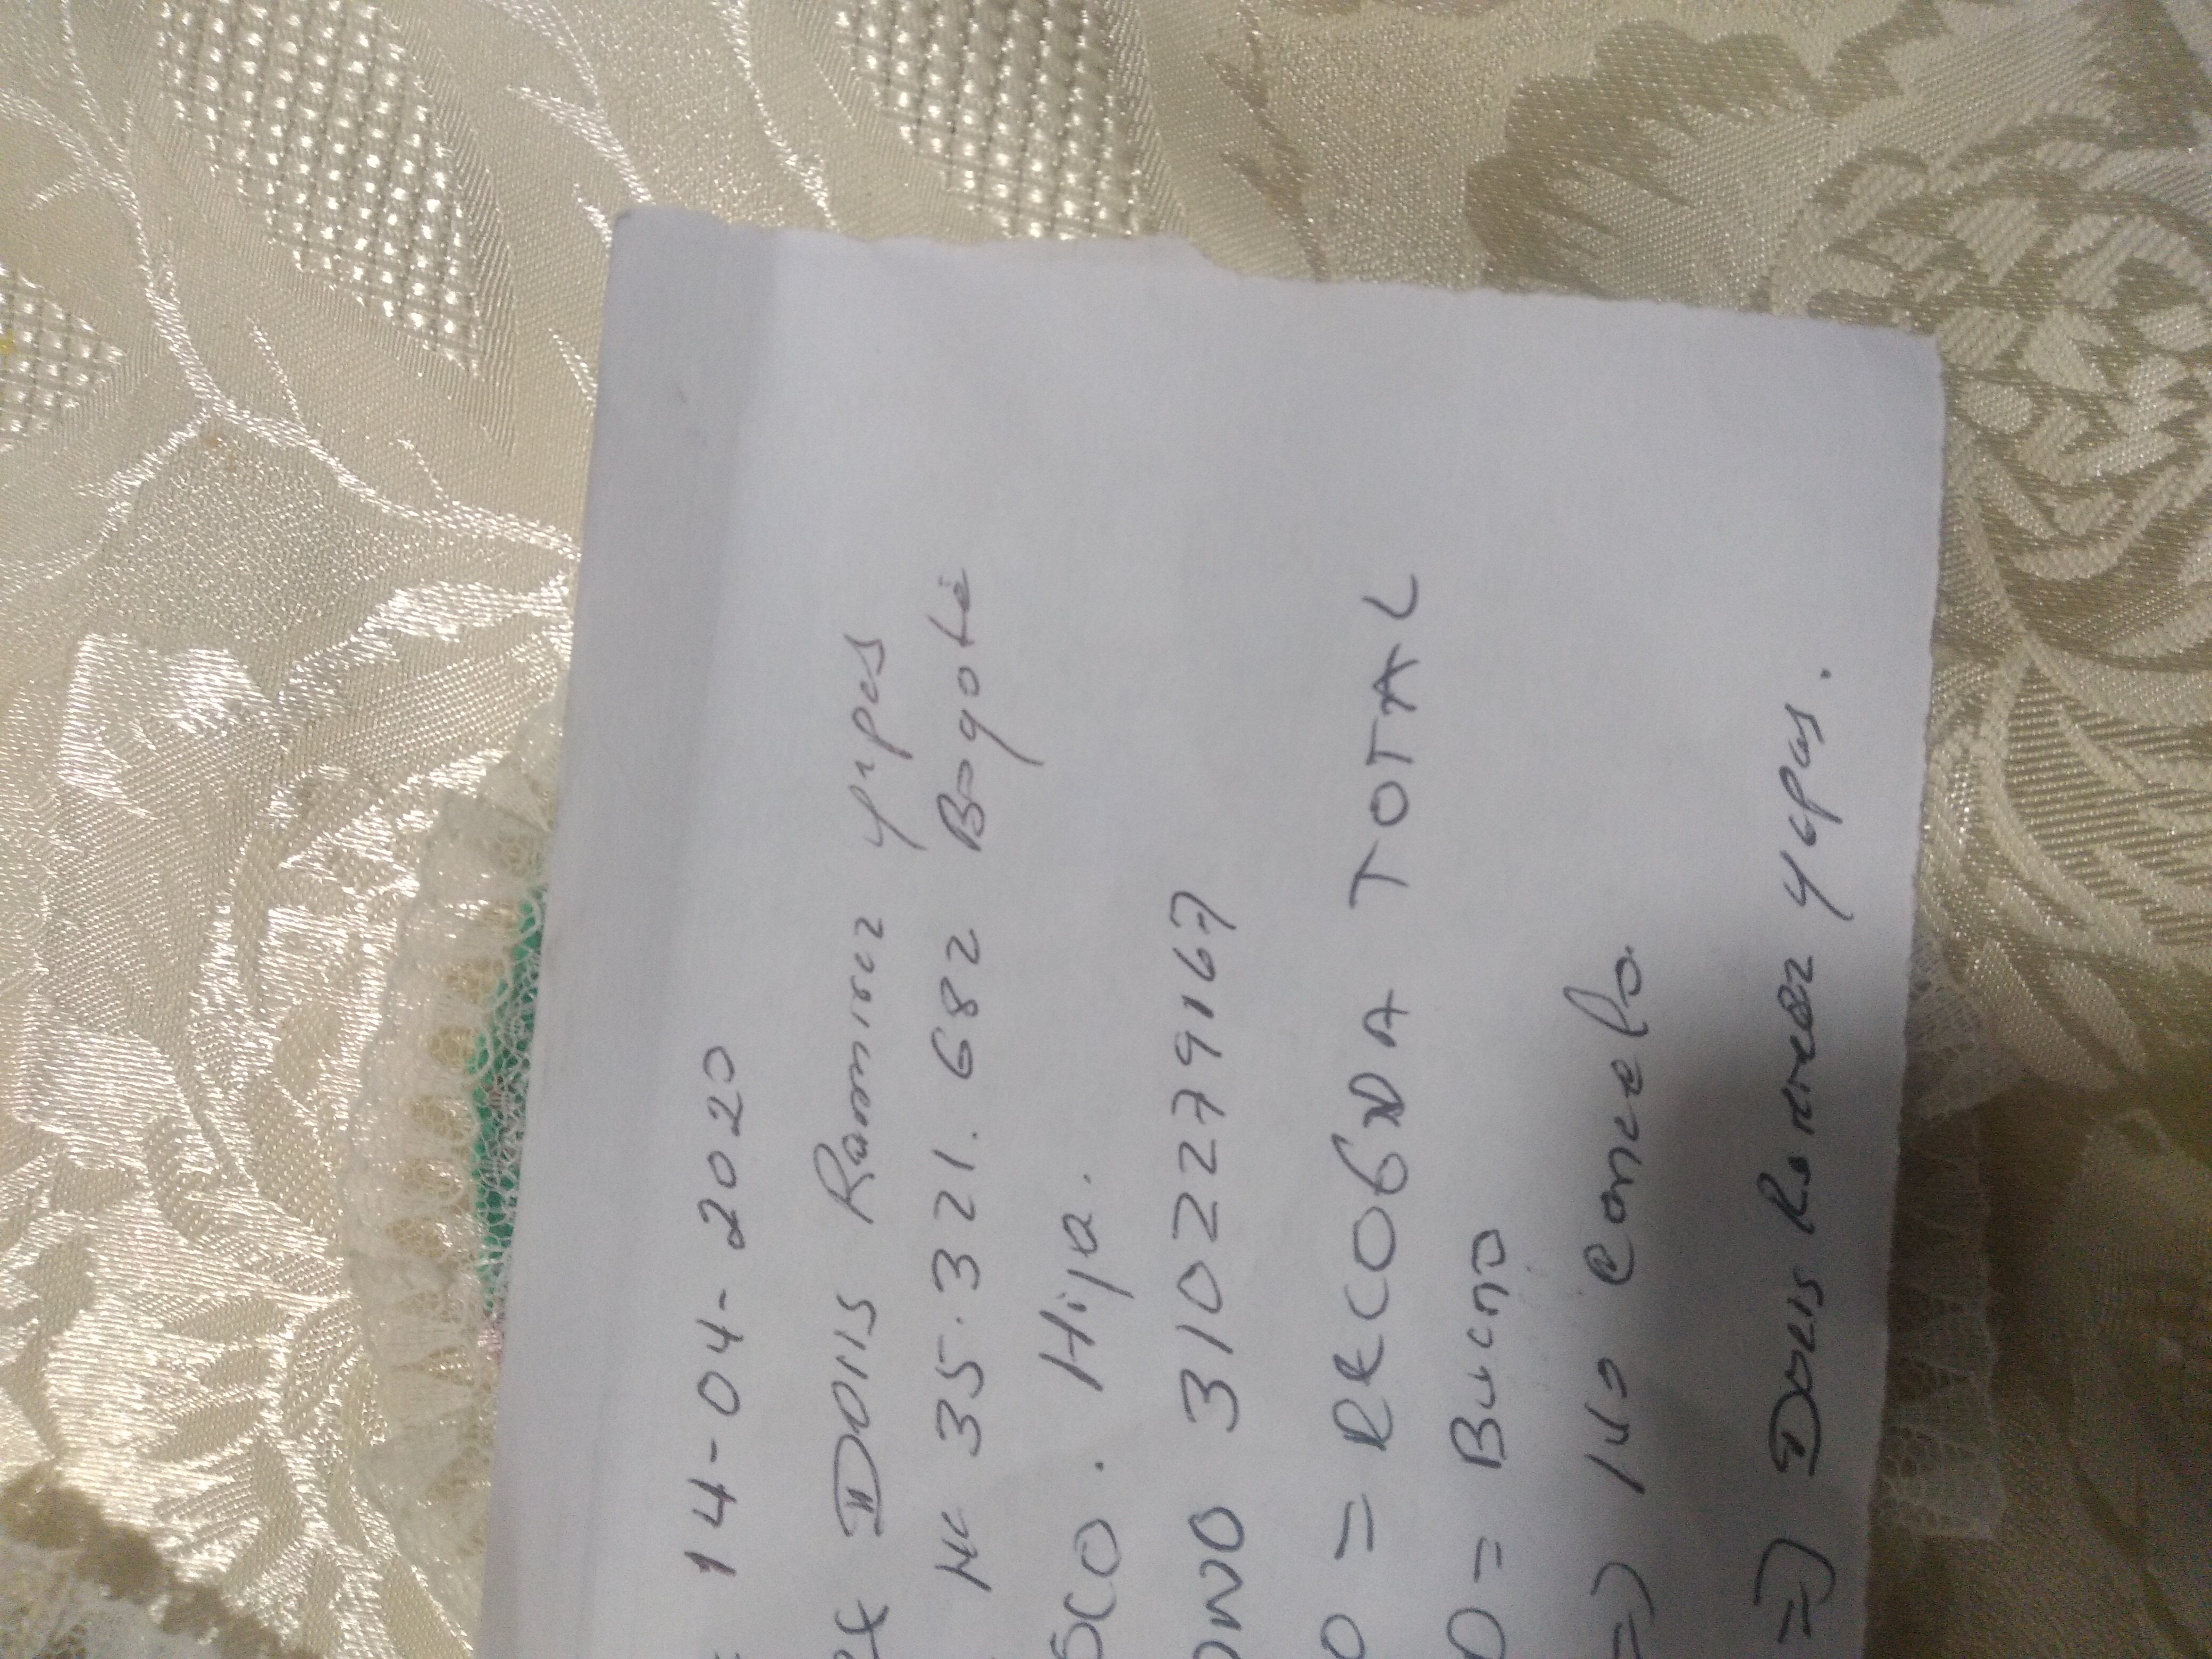 14-04-2020
Doris Ramirez yepes
N= 35.321.682 Bogotá
SCO. Hija.
ONO 3102279167
O = RECOGIDA TOTAL
O = Bueno
=) Doris Ramirez yepes.